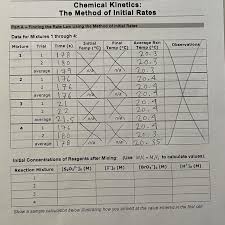 Chemical Kinetics:
The Method of Initial Rates
Part A – Finding the Rate Law using the Method of Initial Rates
Data for Mixtures 1 through 4:
Mixture Trial Time (s) Initial Temp (°C) Final Temp (°C) Average Rxn Temp (°C) Observations
1 1 20.3
2 180 20.3
average 179 n/a n/a 20.3
2 1 176 20.4
2 176 20.4
average 176 n/a n/a 20.4
3 1 21 20.4
2 22 20.4
average n/a n/a 20.4
4 1 176 20.4
2 180 20.3
average 178 n/a n/a 20.35
Initial Concentrations of Reagents after Mixing: (Use M₁V₁ = M₂V₂ to calculate values)
Reaction Mixture [I⁻]₀ (M) [H⁺]₀ (M)
1
2
3
4
Show a sample calculation below illustrating how you arrived at the value entered in the first cell